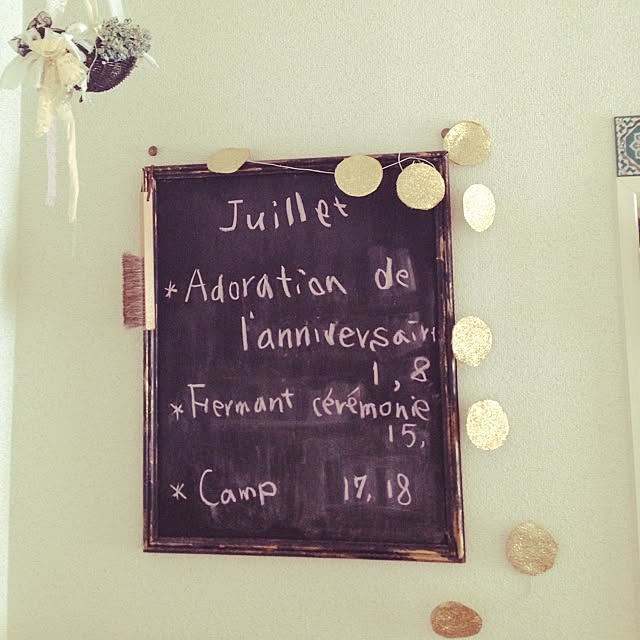 Juillet
*Adoration de
l'anniversaire
1, 8
*Fermant cérémonie
15,
* Camp 17, 18